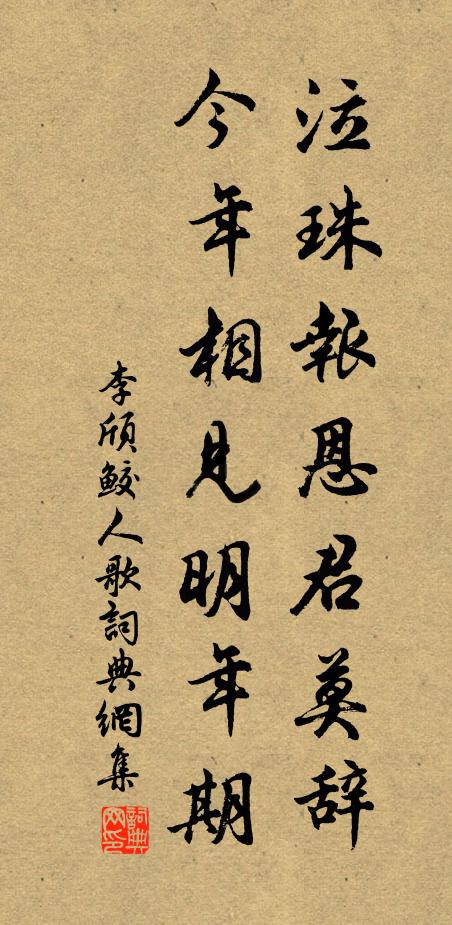 泣珠報恩君莫辞
今年相見明年期
李頎鮫人歌詞典網集
詞典網印